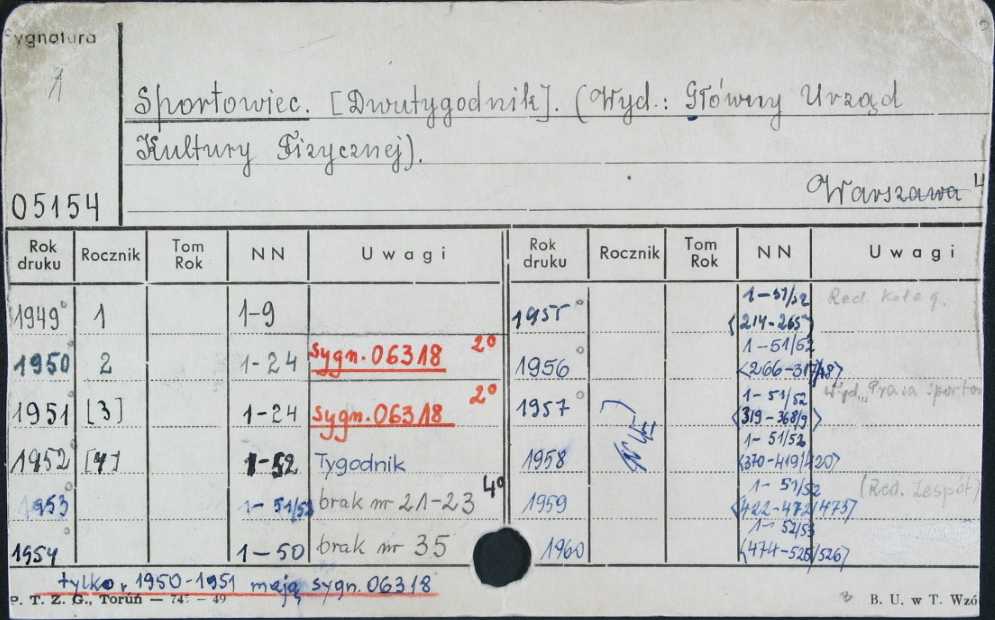 ygnatura
1
Sportowiec. [Dwutygodnik]. (Wyd.: Główny Urząd
Kultury Fizycznej).
Warszawa 4
05154
Rok druku Rocznik Tom Rok NN Uwagi Rok druku Rocznik Tom Rok NN Uwagi
1949° 1 1-9 1955° 1-51/52 Red. Koleg.
<214-265>
1950° 2 1-24 sygn. 06318 2° 1956° 1-51/52
<266-317/18>
1951° [3] 1-24 sygn. 06318 2° 1957° 1-51/52 Wyd. „Prasa Sporto
<319-368/9>
1952° [4] 1-52 Tygodnik 1958 1-51/52
<370-419/420>
1953° 1-51/52 brak nr 21-23 4° 1959 1-51/52 (Red. Zespół)
<422-472/473>
1954° 1-50 brak nr 35 1960 1-52/53
<474-525/526>
tylko r. 1950-1951 mają sygn. 06318
P. T. Z. G., Toruń — 74 - 49 B. U. w T. Wzó